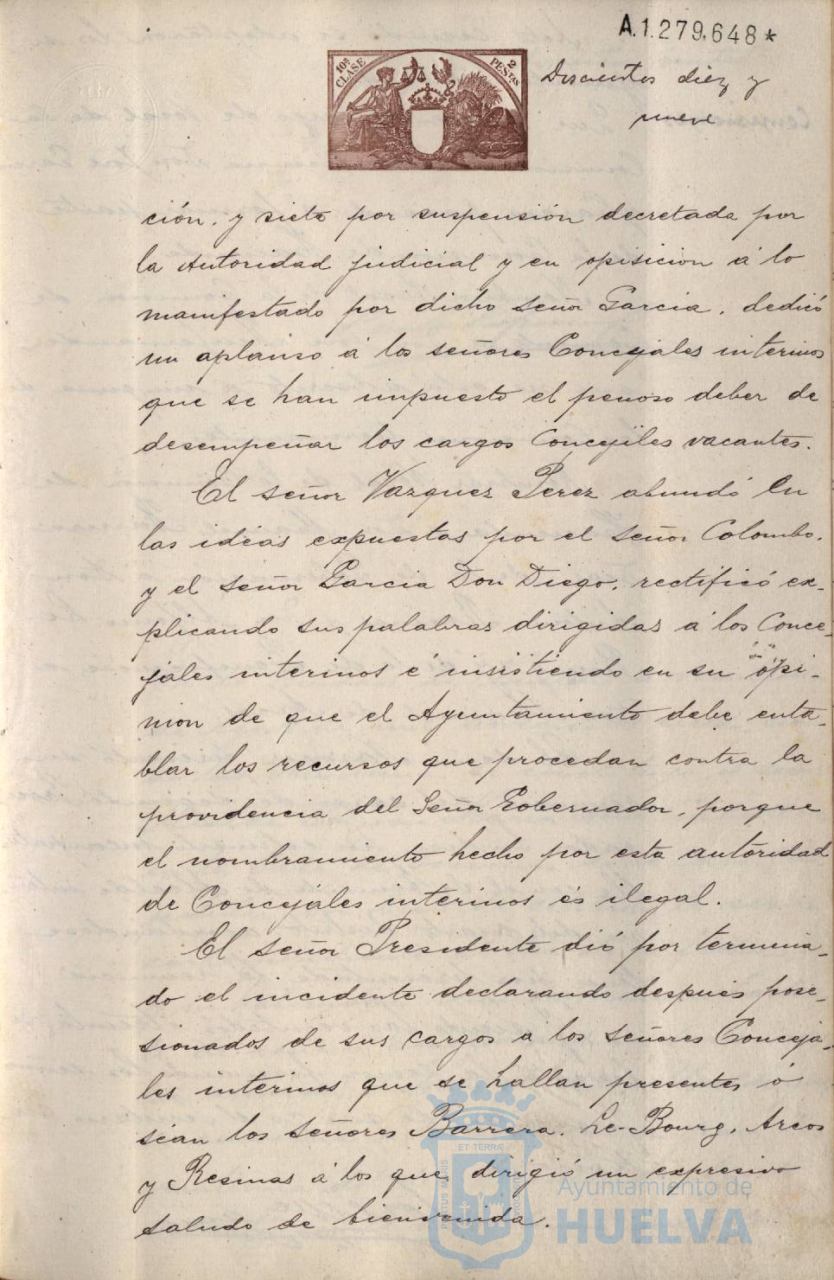 A.1.279.648*
10ª CLASE
2 PESTAS
Doscientos diez y
nueve
ción, y siete por suspensión decretada por
la Autoridad judicial y en opisicion á lo
manifestado por dicho señor Garcia, dedicó
un aplauso á los señores Concejales interinos
que se han impuesto el penoso deber de
desempeñar los cargos Concejiles vacantes.
El señor Vazquez Perez abundó en
las idéas expuestas por el señor Colombo,
y el señor Garcia Don Diego, rectificó ex-
plicando sus palabras dirigidas á los Conce-
jales interinos é insistiendo en su opi-
nion de que el Ayuntamiento debe enta-
blar los recursos que procedan contra la
providencia del Señor Gobernador, porque
el nombramiento hecho por esta autoridad
de Concejales interinos és ilegal.
El señor Presidente dió por termina-
do el incidente declarando despues pose-
sionados de sus cargos á los señores Conceja-
les interinos que se hallan presentes ó
séan los señores Barrera, Le-Bourg, Arcos
y Resinas á los que dirigió un expresivo
saludo de bienvenida.
ET TERRA
Ayuntamiento de
HUELVA